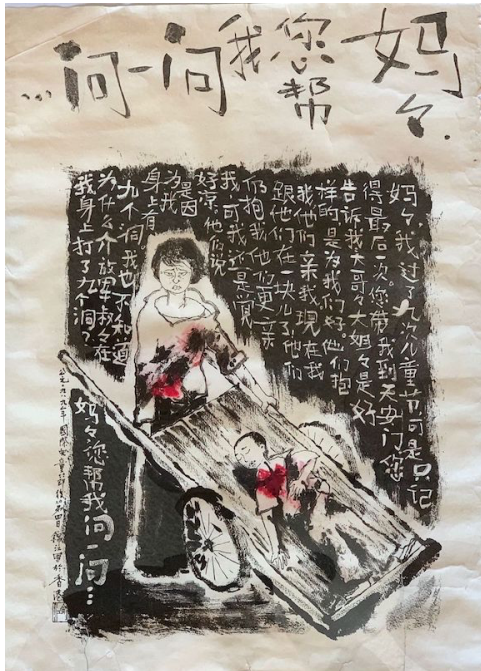 妈々.
您帮
我
问一问…
妈々我过了九次儿童节可是只记
得最后一次。您带我到天安门您
告诉我大哥々大姐々是好
样的是为我们好他们抱
我他们亲我现在我
跟他们在一块儿了他们
仍抱我他们更亲
我可我还是觉
好凉他们说
是因
为我
身上有
九个洞我也不知道
为什么介放军叔々在
我身上打了九个洞?
妈々您帮我问一问…
公元一九八九年國際兒童節後第四日 於香港